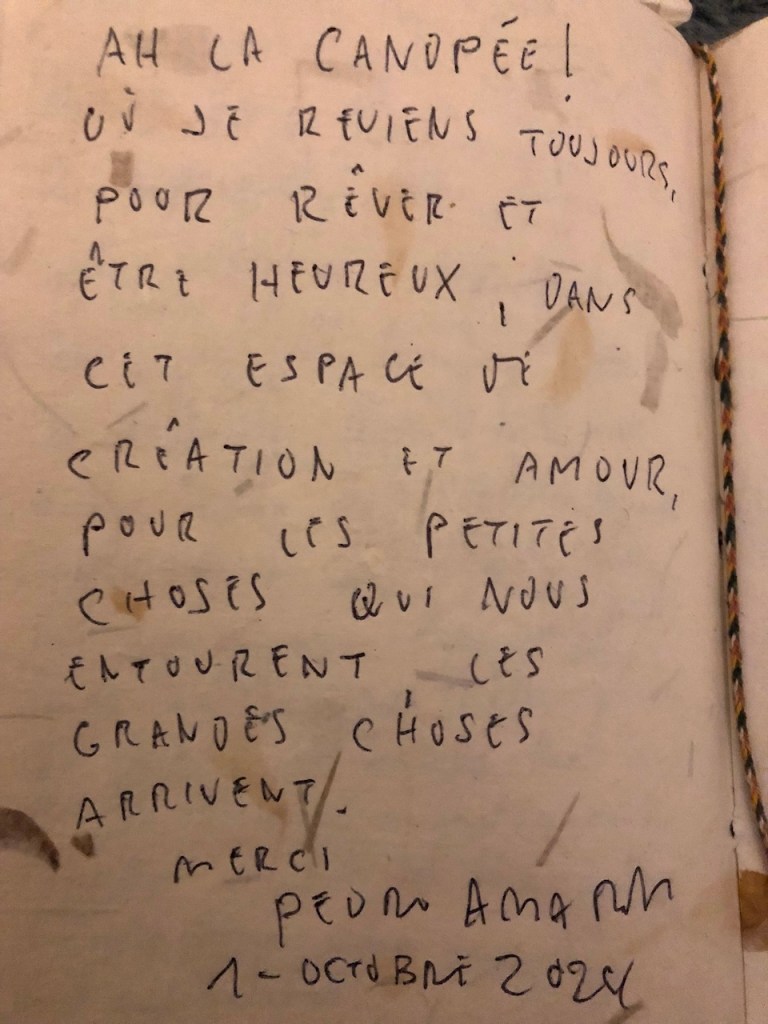 AH LA CANOPÉE!
OÙ JE REVIENS TOUJOURS,
POUR RÊVER ET
ÊTRE HEUREUX, DANS
CET ESPACE DE
CRÊATION ET AMOUR,
POUR LES PETITES
CHOSES QUI NOUS
ENTOURENT, LES
GRANDES CHOSES
ARRIVENT.
MERCI
PEDRO
1-OCTOBRE 2024